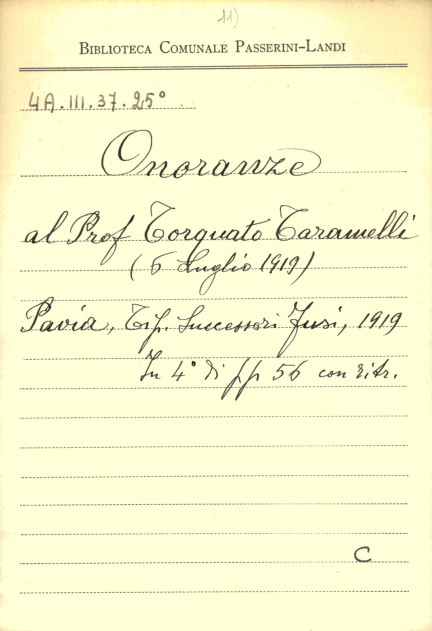 11)
BIBLIOTECA COMUNALE PASSERINI-LANDI
4A.III.37.25°
Onoranze
al Prof Torquato Taramelli
(6 Luglio 1919)
Pavia, Tip. Successori Fusi, 1919
In 4° di pp 56 con ritr.
C